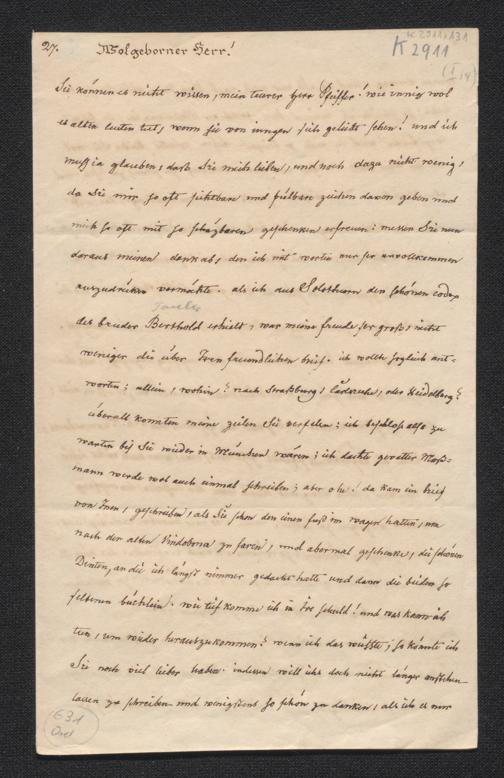 27.
Wolgeborner Herr!
K 2911, 131
K 2911
(I, 14)
Sie können es nicht wissen, mein teurer herr Pfeiffer! wie innig wol
es alten leuten tut, wenn sie von iungen sich geliebt sehen! und ich
muß ia glauben, daß Sie mich lieben, und noch dazu nicht wenig,
da Sie mir so oft sichtbare und fülbare zeichen davon geben und
mich so oft mit so schäzbaren geschenken erfreuen: messen Sie nun
daraus meinen dank ab, den ich mit worten nur ser unvollkommen
auszudrücken vermöchte. als ich aus Solothurn den schönen codex
des bruder Berthold erhielt, war meine freude ser groß, nicht
weniger die über Iren freundlichen brief. ich wollte sogleich ant-
worten; allein, wohin? nach Straßburg, Carlsruhe, oder Heidelberg?
überall konnten meine zeilen Sie verfelen; ich beschloß also zu
warten biß Sie wieder in München wären; ich dachte gevatter Maß-
mann werde wol auch einmal schreiben; aber ohe! da kam ein brief
von Inen, geschrieben, als Sie schon den einen fuß im wagen hatten, um
nach der alten Vindobona zu faren, und abermal geschenke, die schönen
Dinten, an die ich längst nimmer gedacht hatte und dann die beiden so
seltenen büchlein. wie tief komme ich in Ire schuld! und was kann ich
tun, um wieder herauszukommen? wenn ich das wüßte, so könnte ich
Sie noch viel lieber haben. indessen will ichs doch nicht länger anstehen
lassen zu schreiben und wenigstens so schön zu danken, als ich es nur
E 31